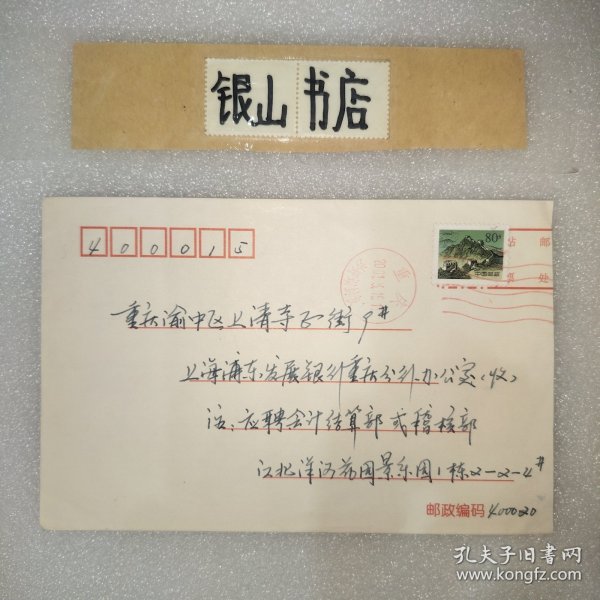 银山书店
400015
80分
中国邮政
重庆渝中区上清寺正街9#
上海浦东发展银行重庆分行办公室(收)
注:应聘会计结算部或稽核部
江北洋河花园景乐园1栋2-2-4#
邮政编码 400020
孔夫子旧书网
www.kongfz.com